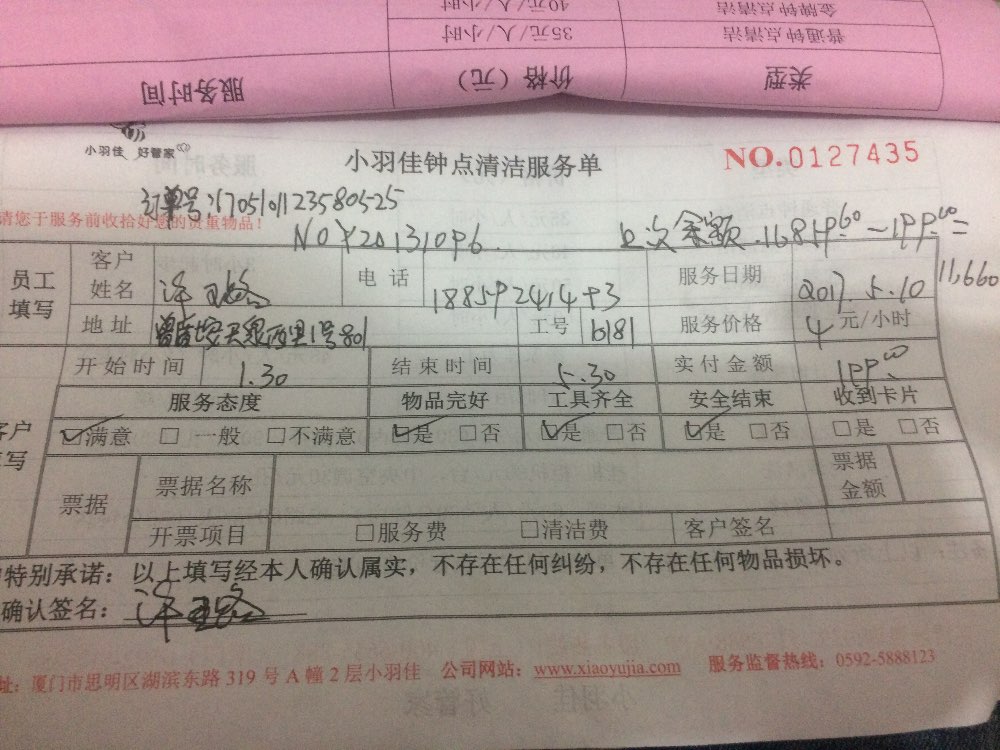 金牌钟点清洁 40元/人/小时
普通钟点清洁 35元/人/小时
类型 价格（元） 服务时间
小羽佳 好管家
小羽佳钟点清洁服务单 NO.0127435
订单号:170510112358052​5
请您于服务前收拾好您的贵重物品!
NOX20131096 上次余额.16859.60-199.00=
11,660
员工填写 客户姓名 电话 服务日期 2017.5.10
地址 工号 6181 服务价格 4 元/小时
开始时间 1.30 结束时间 5.30 实付金额 199.00
服务态度 物品完好 工具齐全 安全结束 收到卡片
☑满意 □ 一般 □不满意 ☑是 □否 ☑是 □否 ☑是 □否 □是 □否
票据 票据名称 票据金额
开票项目 □服务费 □清洁费 客户签名
特别承诺：以上填写经本人确认属实，不存在任何纠纷，不存在任何物品损坏。
确认签名：
址：厦门市思明区湖滨东路 319 号 A 幢 2 层小羽佳 公司网站：www.xiaoyujia.com 服务监督热线：0592-5888123